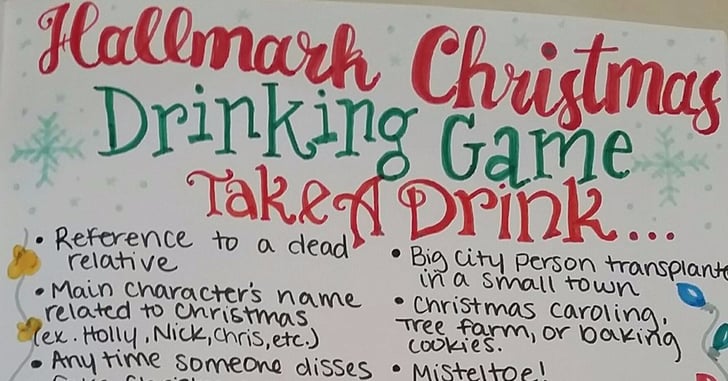 Hallmark Christmas
Drinking Game
Take A Drink...
• Reference to a dead
relative
• Main character's name
related to Christmas
(ex. Holly, Nick, Chris, etc.)
• Any time someone disses
• Big city person transplante
in a small town
• Christmas caroling,
Tree farm, or baking
cookies.
• Misteltoe!